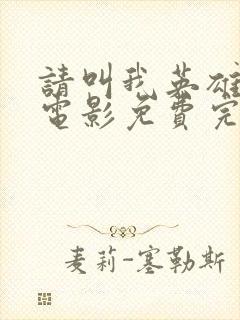 請叫我英雄
電影免費完
麦莉-塞勒斯